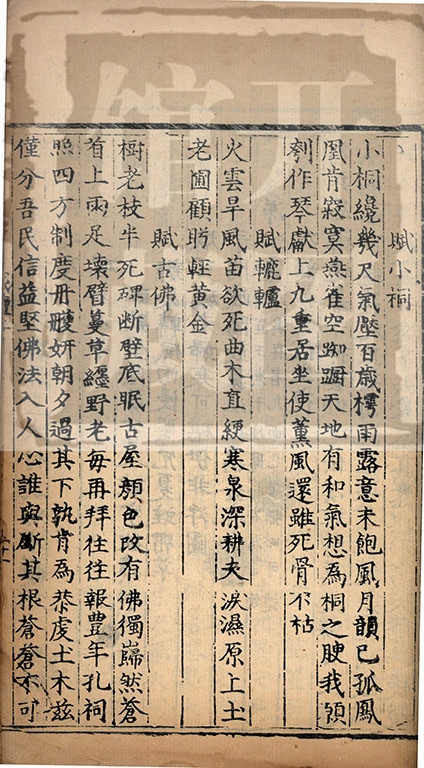 賦小桐
小桐纔幾尺氣壓百歲樗雨露意未飽風月韻已孤鳳
凰肯寂寞燕雀空踟躕天地有和氣想為桐之腴我領
刳作琴獻上九重居坐使薰風還雖死骨不枯
賦轆轤
火雲旱風苗欲死曲木直綆寒泉深耕夫淚濕原上土
老圃顧眄輕黃金
賦古佛
樹老枝半死碑斷壁底眠古屋顏色改有佛獨巋然蒼
首上雨足壞臂蔓草纏野老每再拜往往報豐年孔祠
照四方制度丹雘妍朝夕過其下孰肯為恭虔土木茲
僅分吾民信益堅佛法入人心誰與斷其根蒼蒼不可